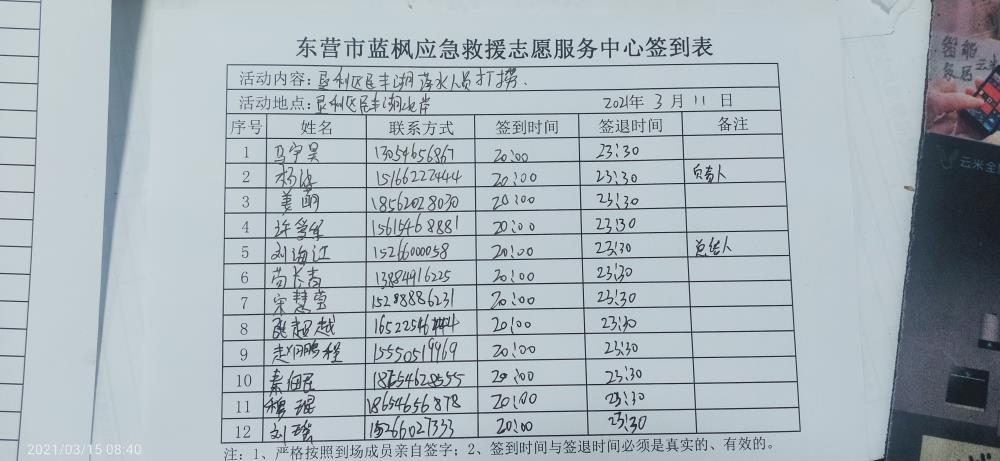 东营市蓝枫应急救援志愿服务中心签到表
活动内容：垦利区民丰湖落水人员打捞.
活动地点：垦利区民丰湖北岸 2021年 3月 11日
序号 姓名 联系方式 签到时间 签退时间 备注
1 马宇昊 13054656867 20:00 23:30
2 杨波 15166222444 20:00 23:30 负责人
3 姜萌 18562028030 20:00 23:30
4 许 15615468881 20:00 23:30
5 刘海江 15266000058 20:00 23:30 总结人
6 尚长青 13884916225 20:00 23:30
7 宋慧莹 15288886231 20:00 23:30
8 张超越 16522546444 20:00 23:30
9 赵鹏程 15550519969 20:00 23:30
10 秦 18654628555 20:00 23:30
11 穆琨 18654656878 20:00 23:30
12 刘 15266027333 20:00 23:30
注：1、严格按照到场成员亲自签字；2、签到时间与签退时间必须是真实的、有效的。
2021/03/15 08:40
智能
家居
云米
云米全